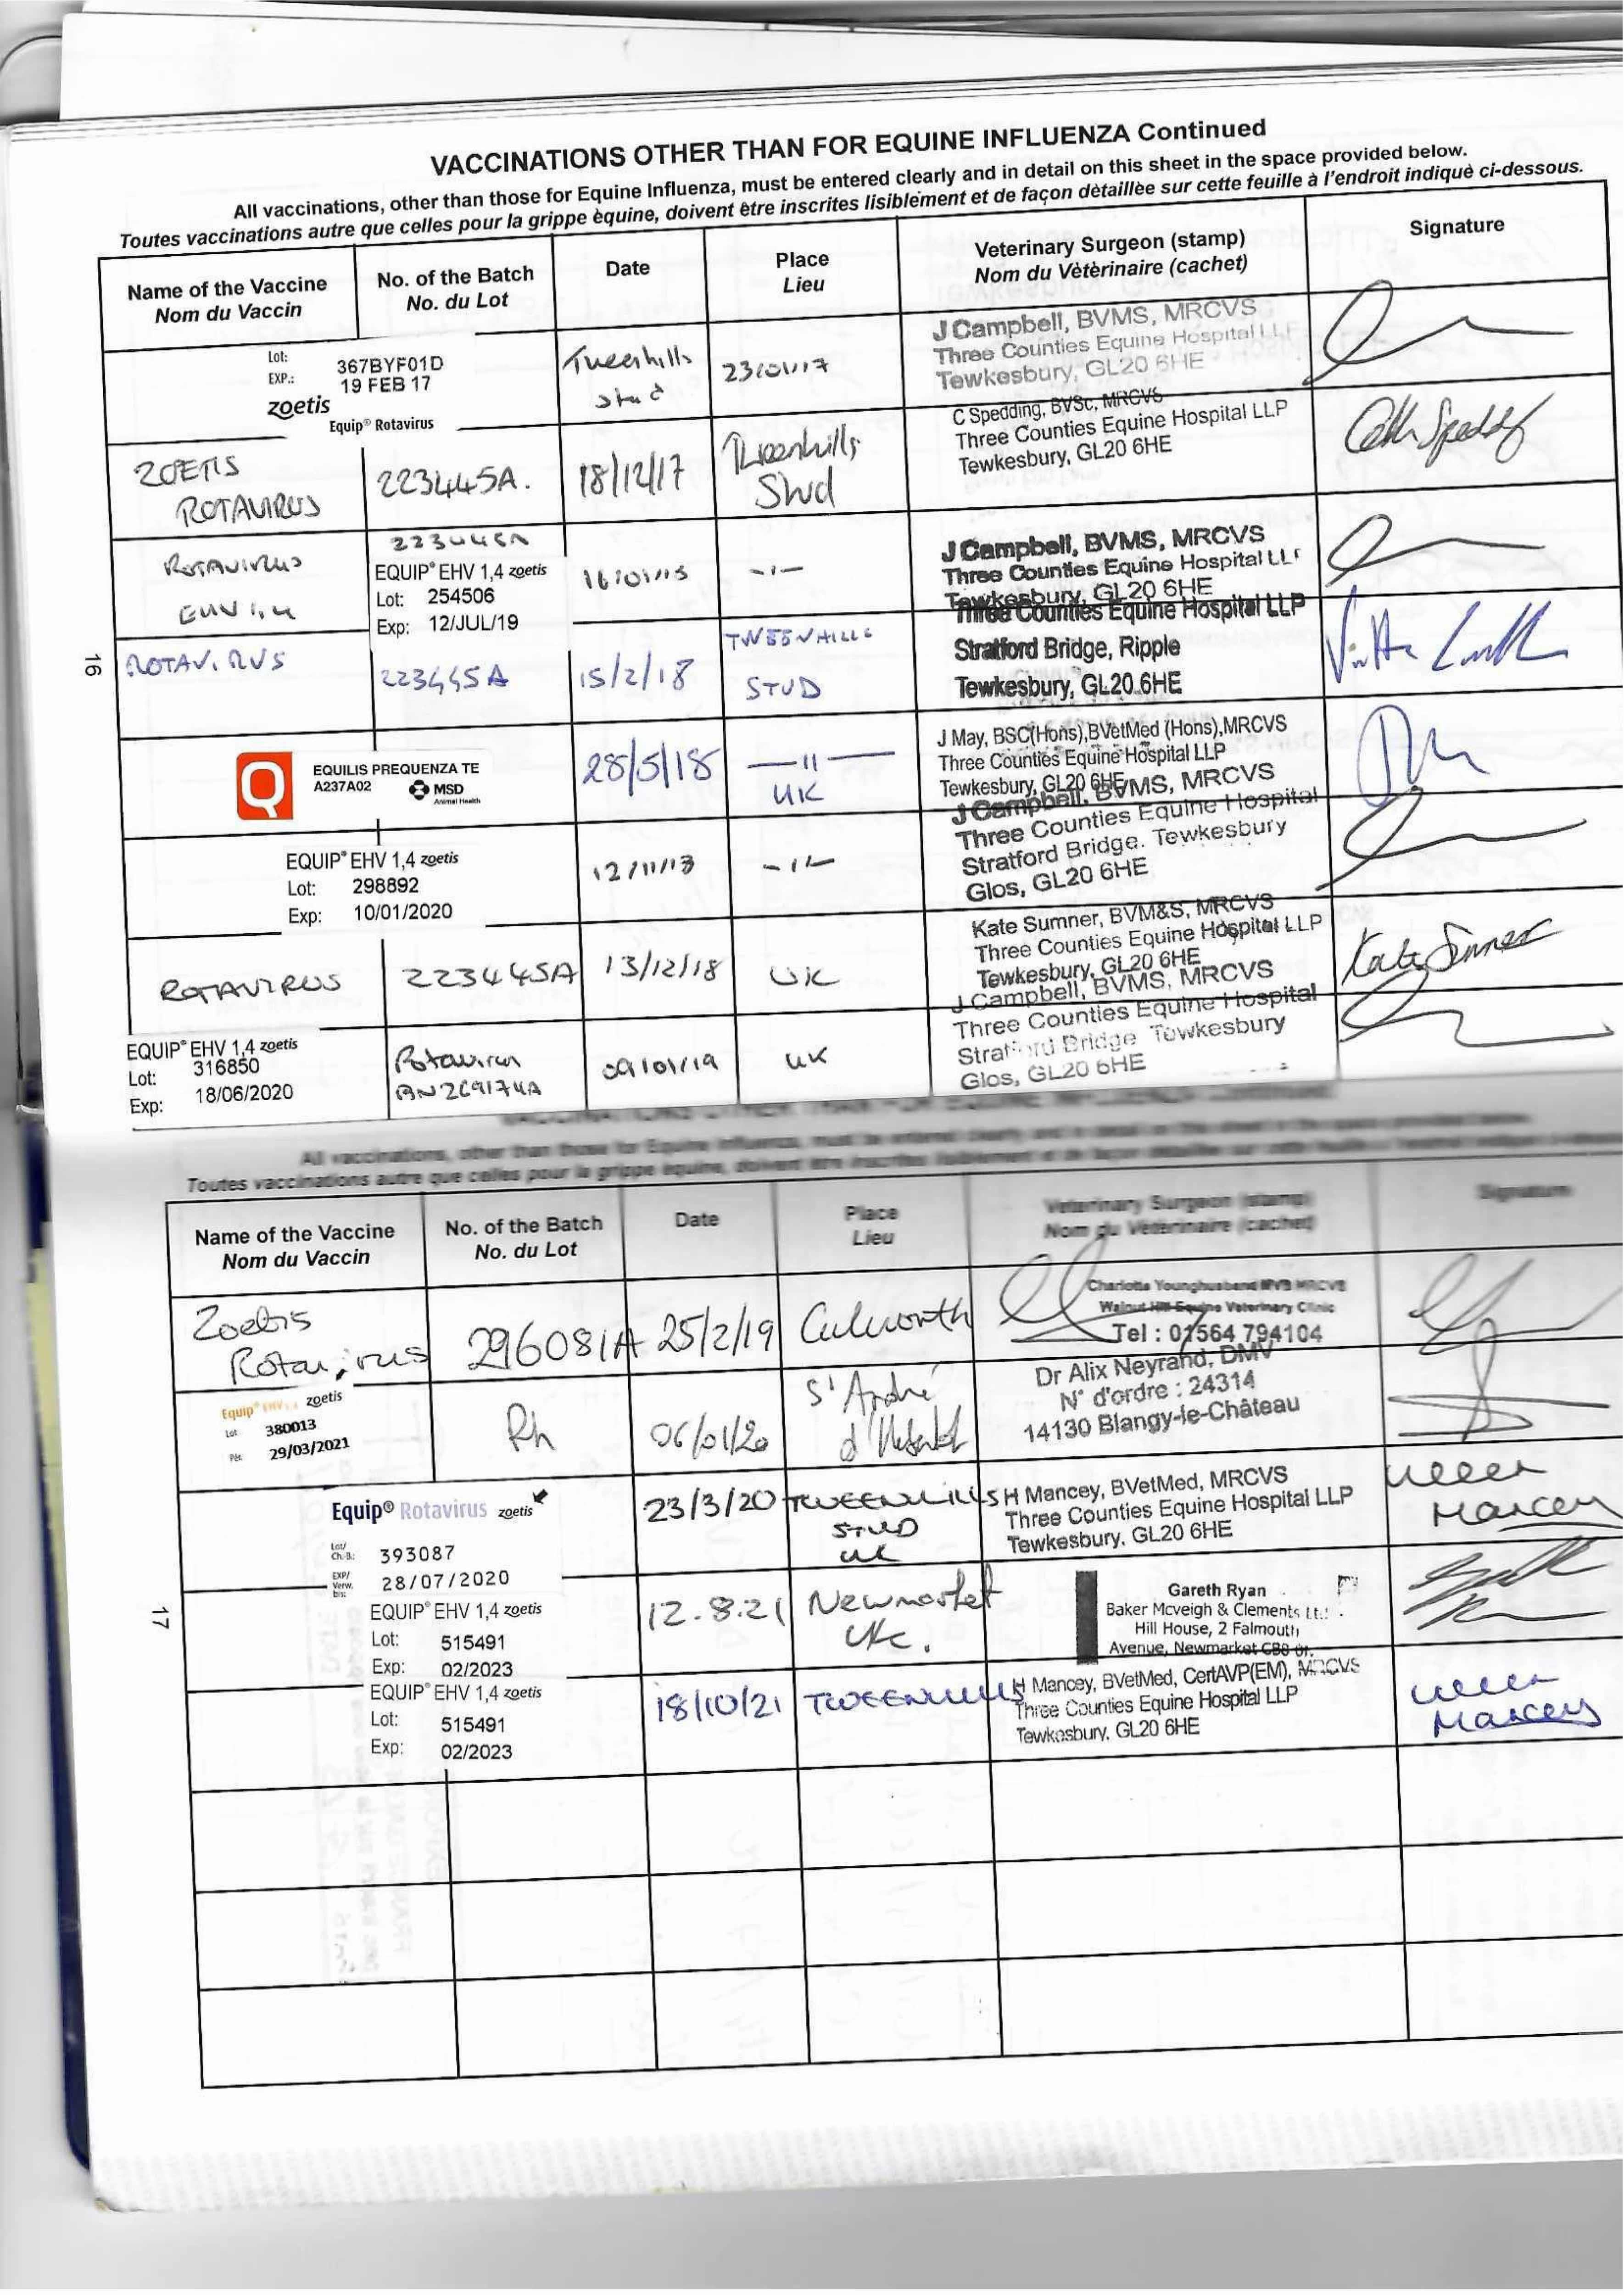 VACCINATIONS OTHER THAN FOR EQUINE INFLUENZA Continued
All vaccinations, other than those for Equine Influenza, must be entered clearly and in detail on this sheet in the space provided below.
Toutes vaccinations autre que celles pour la grippe èquine, doivent être inscrites lisiblement et de façon dètaillèe sur cette feuille à l'endroit indiquè ci-dessous.
Name of the Vaccine
Nom du Vaccin
No. of the Batch
No. du Lot
Date
Place
Lieu
Veterinary Surgeon (stamp)
Nom du Vètèrinaire (cachet)
Signature
Lot: 367BYF01D
EXP.: 19 FEB 17
zoetis
Equip® Rotavirus
Tweenhills
Stud
23/01/17
J Campbell, BVMS, MRCVS
Three Counties Equine Hospital LLP
Tewkesbury, GL20 6HE
ZOETIS
ROTAVIRUS
223445A.
18/12/17
Tweenhills
Stud
C Spedding, BVSc, MRCVS
Three Counties Equine Hospital LLP
Tewkesbury, GL20 6HE
ROTAVIRUS
EHV 1,4
223445A
EQUIP® EHV 1,4 zoetis
Lot: 254506
Exp: 12/JUL/19
-"-
J Campbell, BVMS, MRCVS
Three Counties Equine Hospital LLP
Tewkesbury, GL20 6HE
16
ROTAVIRUS
223445A
15/2/18
TWEENHILLS
STUD
Three Counties Equine Hospital LLP
Stratford Bridge, Ripple
Tewkesbury, GL20 6HE
Q
EQUILIS PREQUENZA TE
A237A02
MSD
Animal Health
28/5/18
—"—
UK
J May, BSC(Hons),BVetMed (Hons),MRCVS
Three Counties Equine Hospital LLP
Tewkesbury, GL20 6HE
EQUIP® EHV 1,4 zoetis
Lot: 298892
Exp: 10/01/2020
-"-
J Campbell, BVMS, MRCVS
Three Counties Equine Hospital
Stratford Bridge. Tewkesbury
Glos, GL20 6HE
ROTAVIRUS
223445A
13/12/18
UK
Kate Sumner, BVM&S, MRCVS
Three Counties Equine Hospital LLP
Tewkesbury, GL20 6HE
Kate Sumner
EQUIP® EHV 1,4 zoetis
Lot: 316850
Exp: 18/06/2020
Rotavirus
09/01/19
UK
J Campbell, BVMS, MRCVS
Three Counties Equine Hospital
Stratford Bridge Tewkesbury
Glos, GL20 6HE
All vaccinations, other than those for Equine Influenza, must be entered clearly and in detail on this sheet in the space provided below.
Toutes vaccinations autre que celles pour la grippe èquine, doivent être inscrites lisiblement et de façon
Name of the Vaccine
Nom du Vaccin
No. of the Batch
No. du Lot
Date
Place
Lieu
Veterinary Surgeon (stamp)
Nom du Vètèrinaire (cachet)
Signature
Zoetis
Rotavirus
296081A
25/2/19
Culworth
Charlotte Younghusband MVB MRCVS
Walnut Hill Equine Veterinary Clinic
Tel : 01564 794104
Equip® EHV 1,4 zoetis
Lot 380013
Per. 29/03/2021
Rh
06/01/20
St André
Dr Alix Neyrand, DMV
N° d'ordre : 24314
14130 Blangy-le-Château
Equip® Rotavirus zoetis
Lot/
Ch.-B.: 393087
EXP/
Verw.
bis: 28/07/2020
23/3/20
TWEENHILLS
STUD
UK
H Mancey, BVetMed, MRCVS
Three Counties Equine Hospital LLP
Tewkesbury. GL20 6HE
Mancey
17
EQUIP® EHV 1,4 zoetis
Lot: 515491
Exp: 02/2023
12.8.21
Newmarket
UK.
Gareth Ryan
Baker Mcveigh & Clements Lt
Hill House, 2 Falmouth
Avenue, Newmarket CB8
EQUIP® EHV 1,4 zoetis
Lot: 515491
Exp: 02/2023
18/10/21
TWEENHILLS
H Mancey, BVetMed, CertAVP(EM), MRCVS
Three Counties Equine Hospital LLP
Tewkesbury, GL20 6HE
Mancey